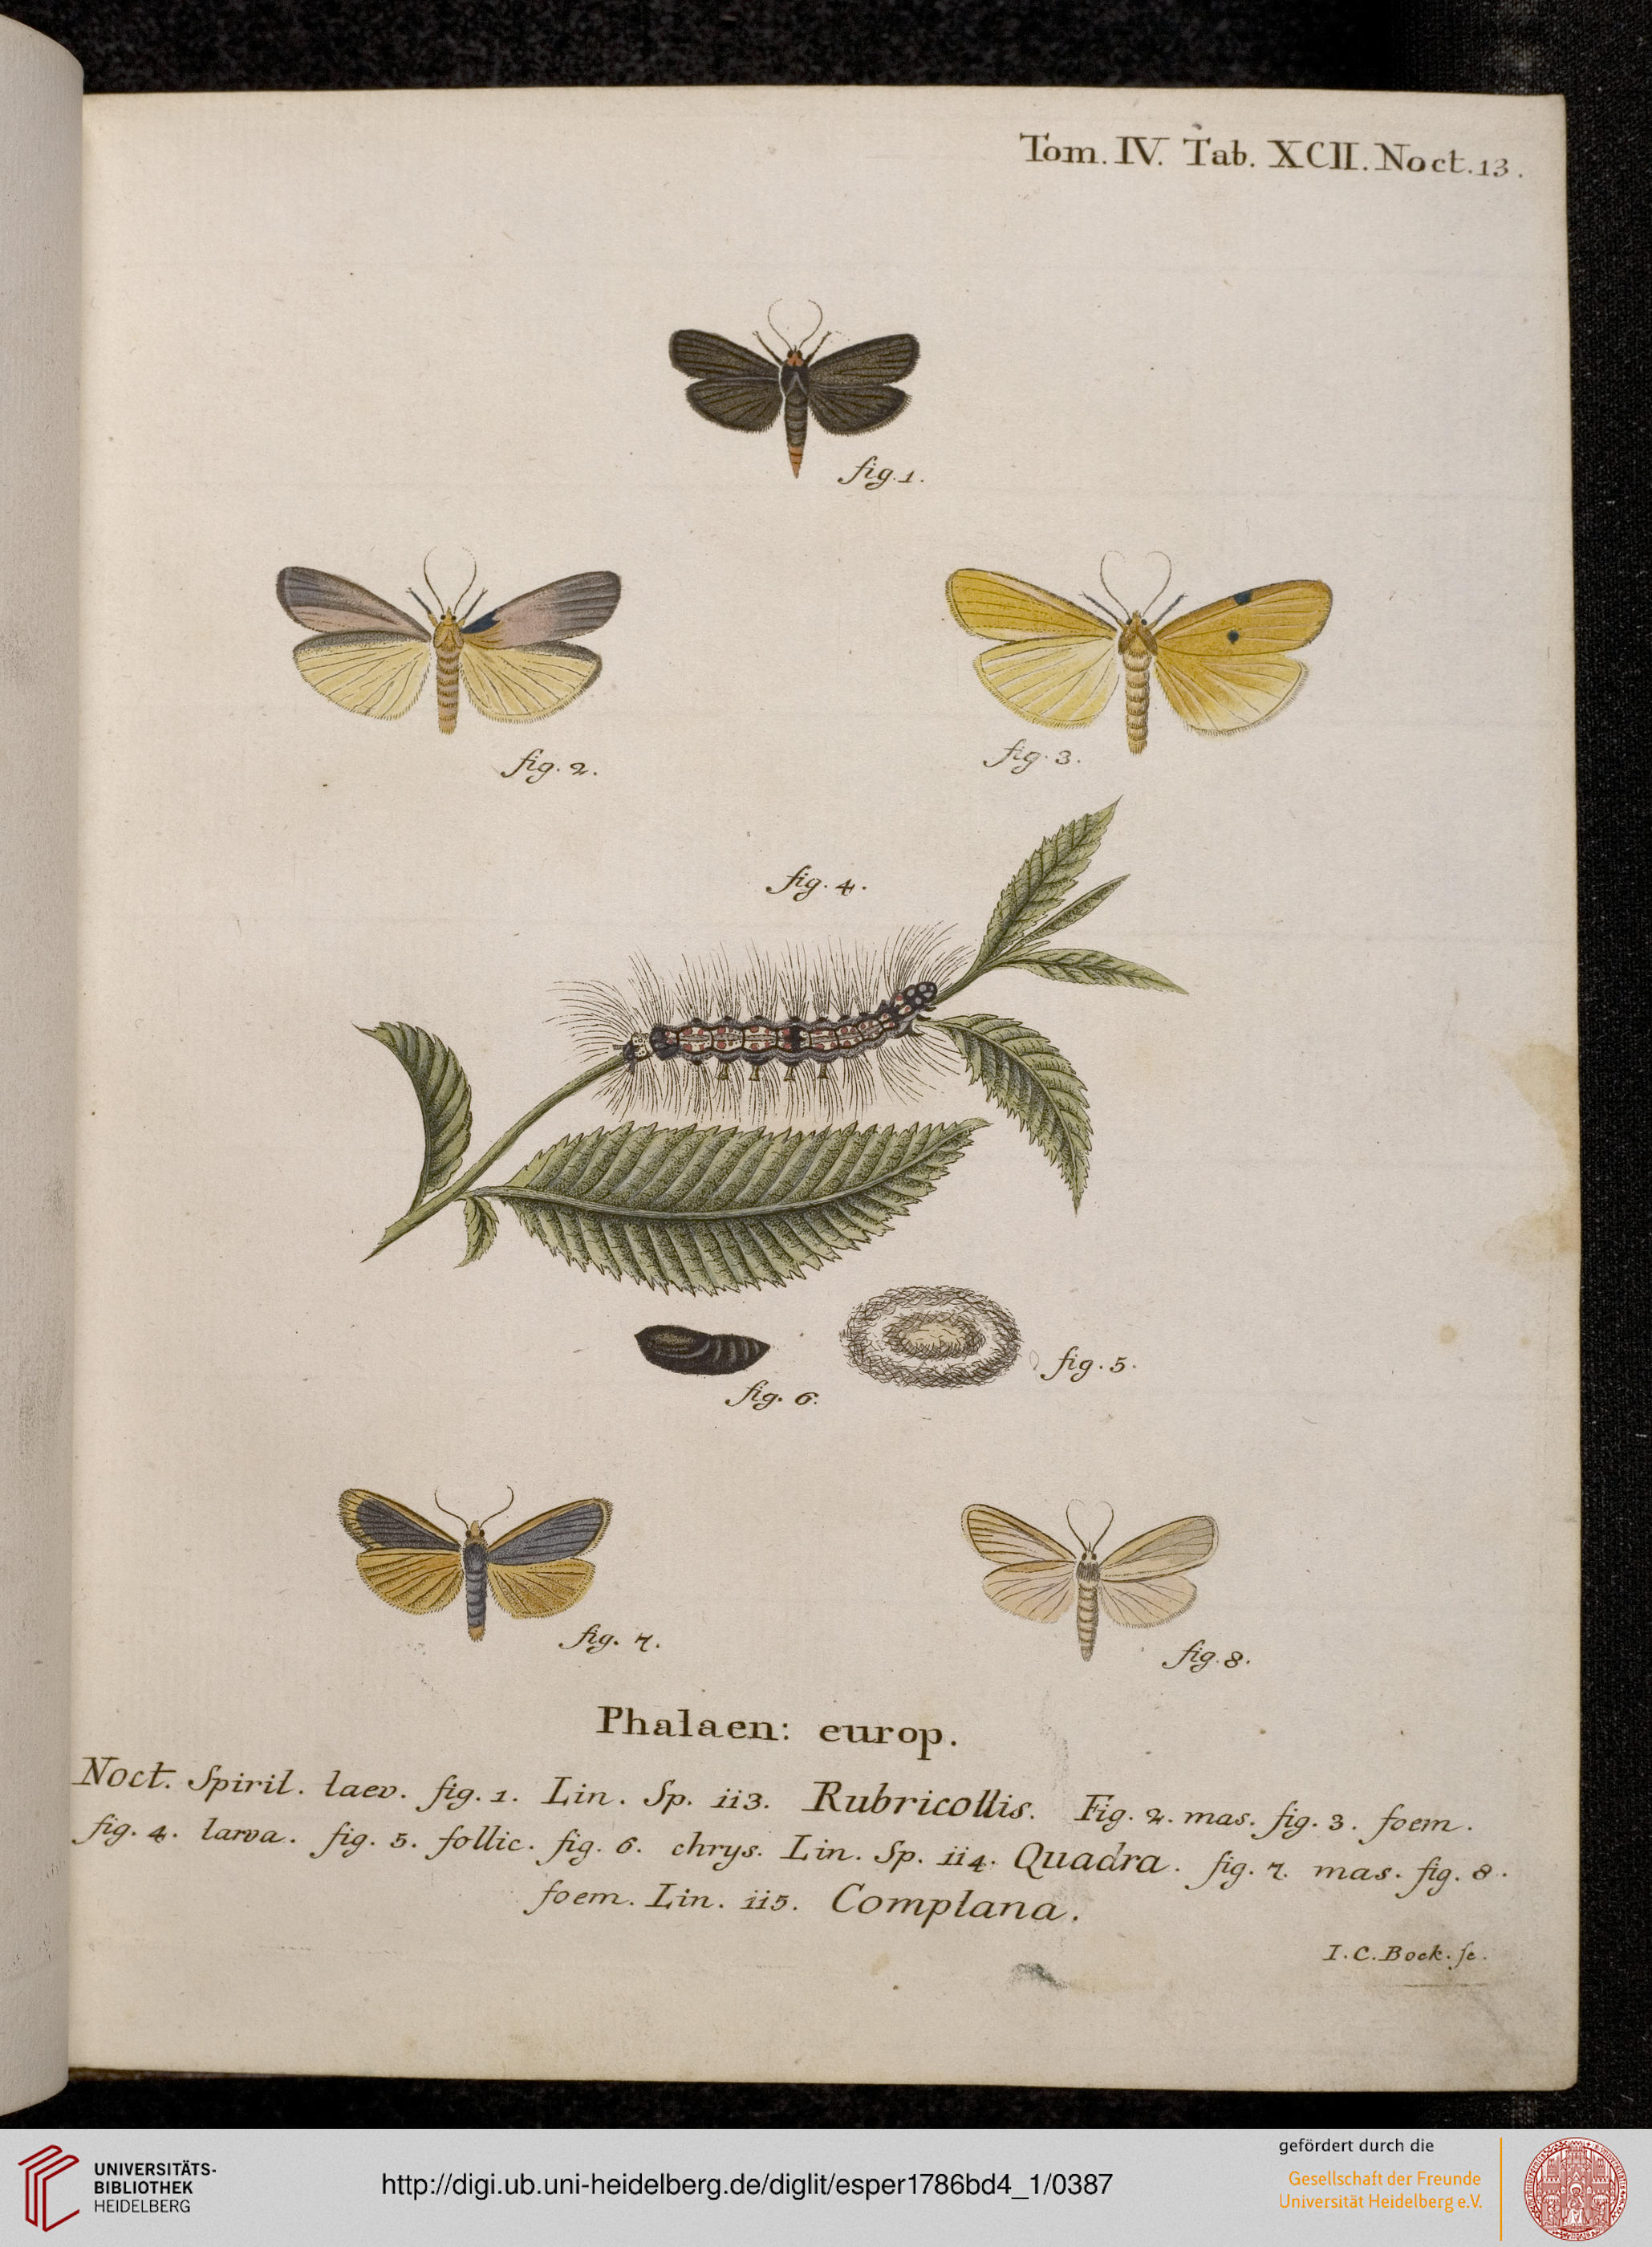 Tom. IV. Tab. XCII. Noct. 13.
fig. 1.
fig. 2.
fig. 3.
fig. 4.
fig. 5.
fig. 6.
fig. 7.
fig. 8.
Phalaen: europ.
Noct. Spiril. laev. fig. 1. Lin. Sp. 113. Rubricollis. Fig. 2. mas. fig. 3. foem.
fig. 4. larva. fig. 5. follic. fig. 6. chrys. Lin. Sp. 114. Quadra. fig. 7. mas. fig. 8.
foem. Lin. 115. Complana.
I. C. Bock. sc.
UNIVERSITÄTS-
BIBLIOTHEK
HEIDELBERG
http://digi.ub.uni-heidelberg.de/diglit/esper1786bd4_1/0387
gefördert durch die
Gesellschaft der Freunde
Universität Heidelberg e.V.